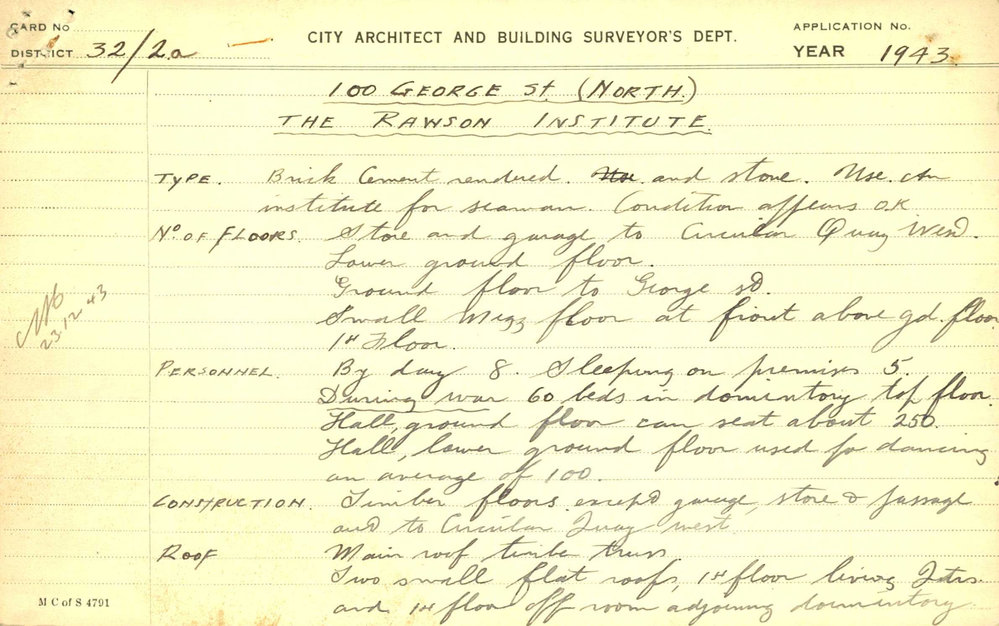 CARD No
DISTRICT 32/2a
CITY ARCHITECT AND BUILDING SURVEYOR'S DEPT.
APPLICATION No.
YEAR 1943
100 GEORGE St (NORTH.)
THE RAWSON INSTITUTE.
TYPE. Brick Cement rendered. and stone. Use. An
institute for seaman. Condition appears O.K
No OF FLOORS. Store and garage to Circular Quay West.
Lower ground floor.
Ground floor to George St.
Small Mezz floor at front above gd. floor
1st Floor.
PERSONNEL. By day 8. Sleeping on premises 5.
During war 60 beds in domintory top floor.
Hall, ground floor can seat about 250.
Hall, lower ground floor used for dancing
an average of 100.
CONSTRUCTION. Timber floors except garage, store & passage
and to Circular Quay west
ROOF Main roof timber truss
Two small flat roofs, 1st floor living Qtrs.
and 1st floor off room adjoining dormintory.
23 12 43
M C of S 4791